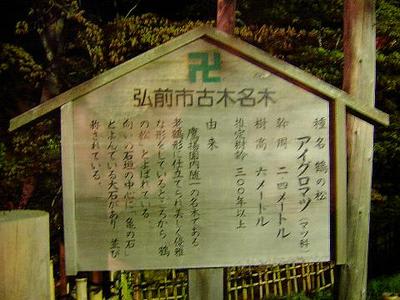 卍
弘前市古木名木
種名 鶴の松
アイグロマツ（マツ科）
幹周 二・四メートル
樹高 六メートル
推定樹齢 三〇〇年以上
由来
鷹揚園内随一の名木である
老鶴形に仕立てられ美しく優雅
な形をしているところから、鶴
の松と呼ばれている。
向いの石垣の中心に「亀の石」
とよんでいる大石があり、並び
称されている。